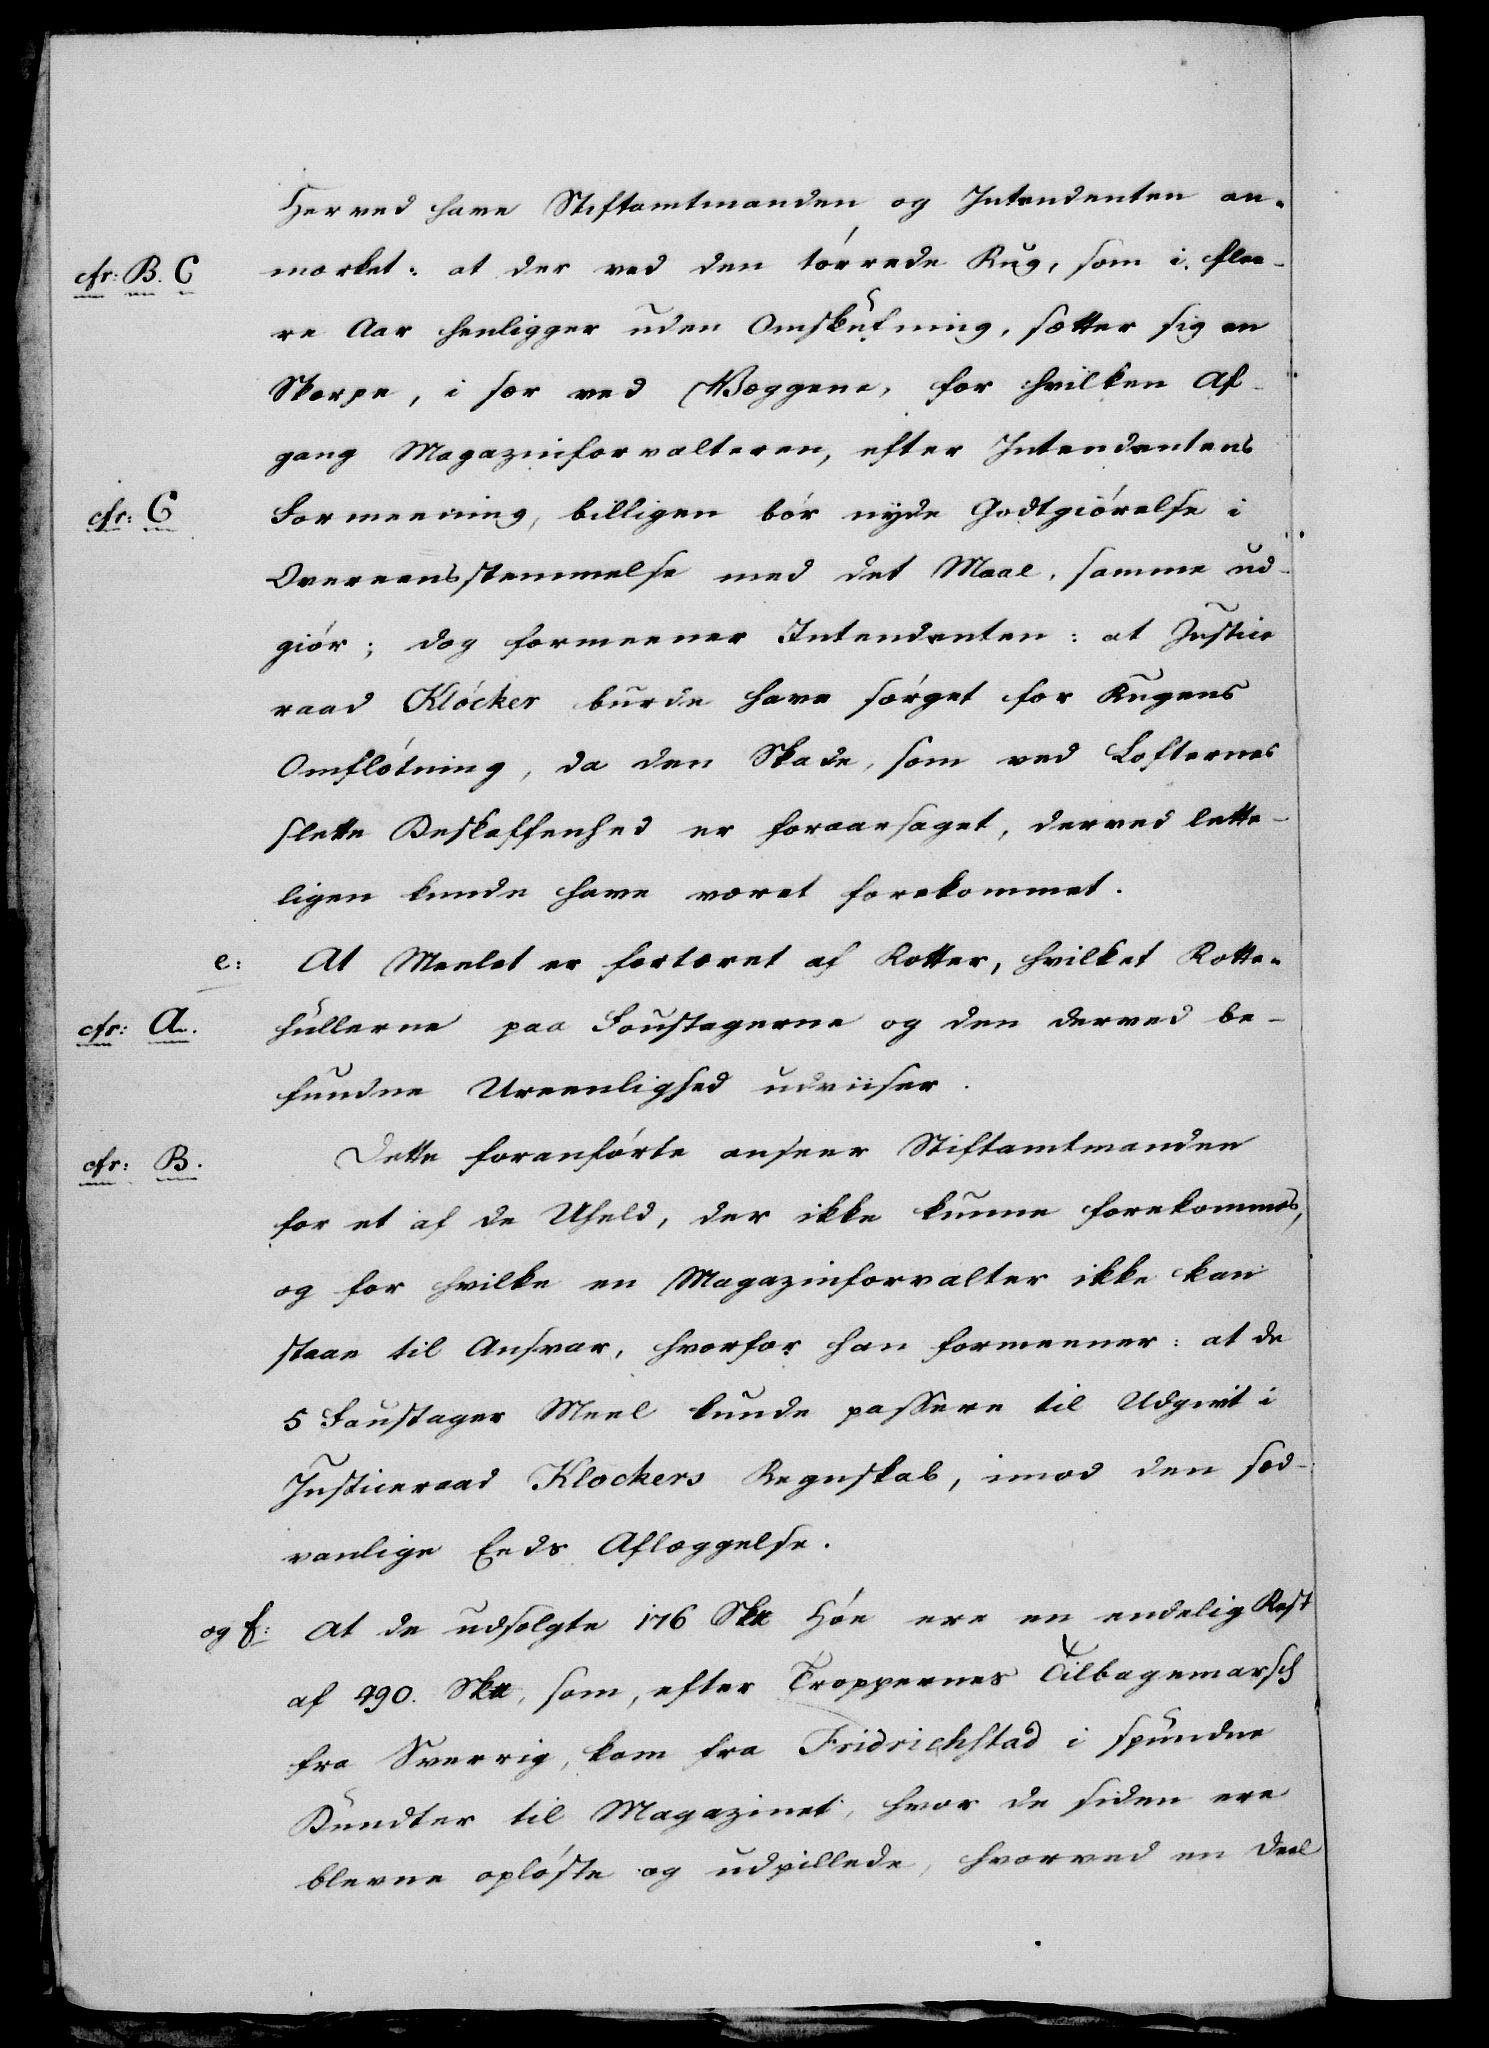 Herved have Stiftamtmanden og Intendenten an-
cfr: B. C mærket: at der ved den tørrede Rug, som i flee-
re Aar henligger uden Omskufning, sætter sig en
Skorpe, i sær ved Væggene, for hvilken Af-
gang Magazinforvalteren, efter Intendentens
cfr: C Formeening, billigen bør nyde Godtgiørelse i
Overeensstemmelse med det Maal, samme ud-
giør; dog formeener Intendenten: at Justice
raad Kløcker burde have sørget for Rugens
Omfløtning, da den Skade, som ved Lofternes
slette Beskaffenhed er foraarsaget, derved lette-
ligen kunde have været forekommet.
e: At Meelet er fortæret af Rotter, hvilket Rotte-
cfr: A. hullerne paa Foustagerne og den derved be-
fundne Ureenlighed udviiser.
cfr: B. Dette foranførte anseer Stiftamtmanden
for et af de Uheld, der ikke kunne forekommes,
og for hvilke en Magazinforvalter ikke kan
staae til Ansvar, hvorfor han formeener: at de
5 Foustager Meel kunde passere til Udgivt i
Justiceraad Klockers Regnskab, imod den sæd-
vanlige Eeds Aflæggelse.
og f: At de udsolgte 176 Sk℔ Høe ere en endelig Rest
af 490. Sk℔, som, efter Troppernes Tilbagemarsch
fra Sverrig, kom fra Fridrichstad i spundne
Bundter til Magazinet, hvor de siden ere
blevne opløste og udpillede, hvorved en Deel